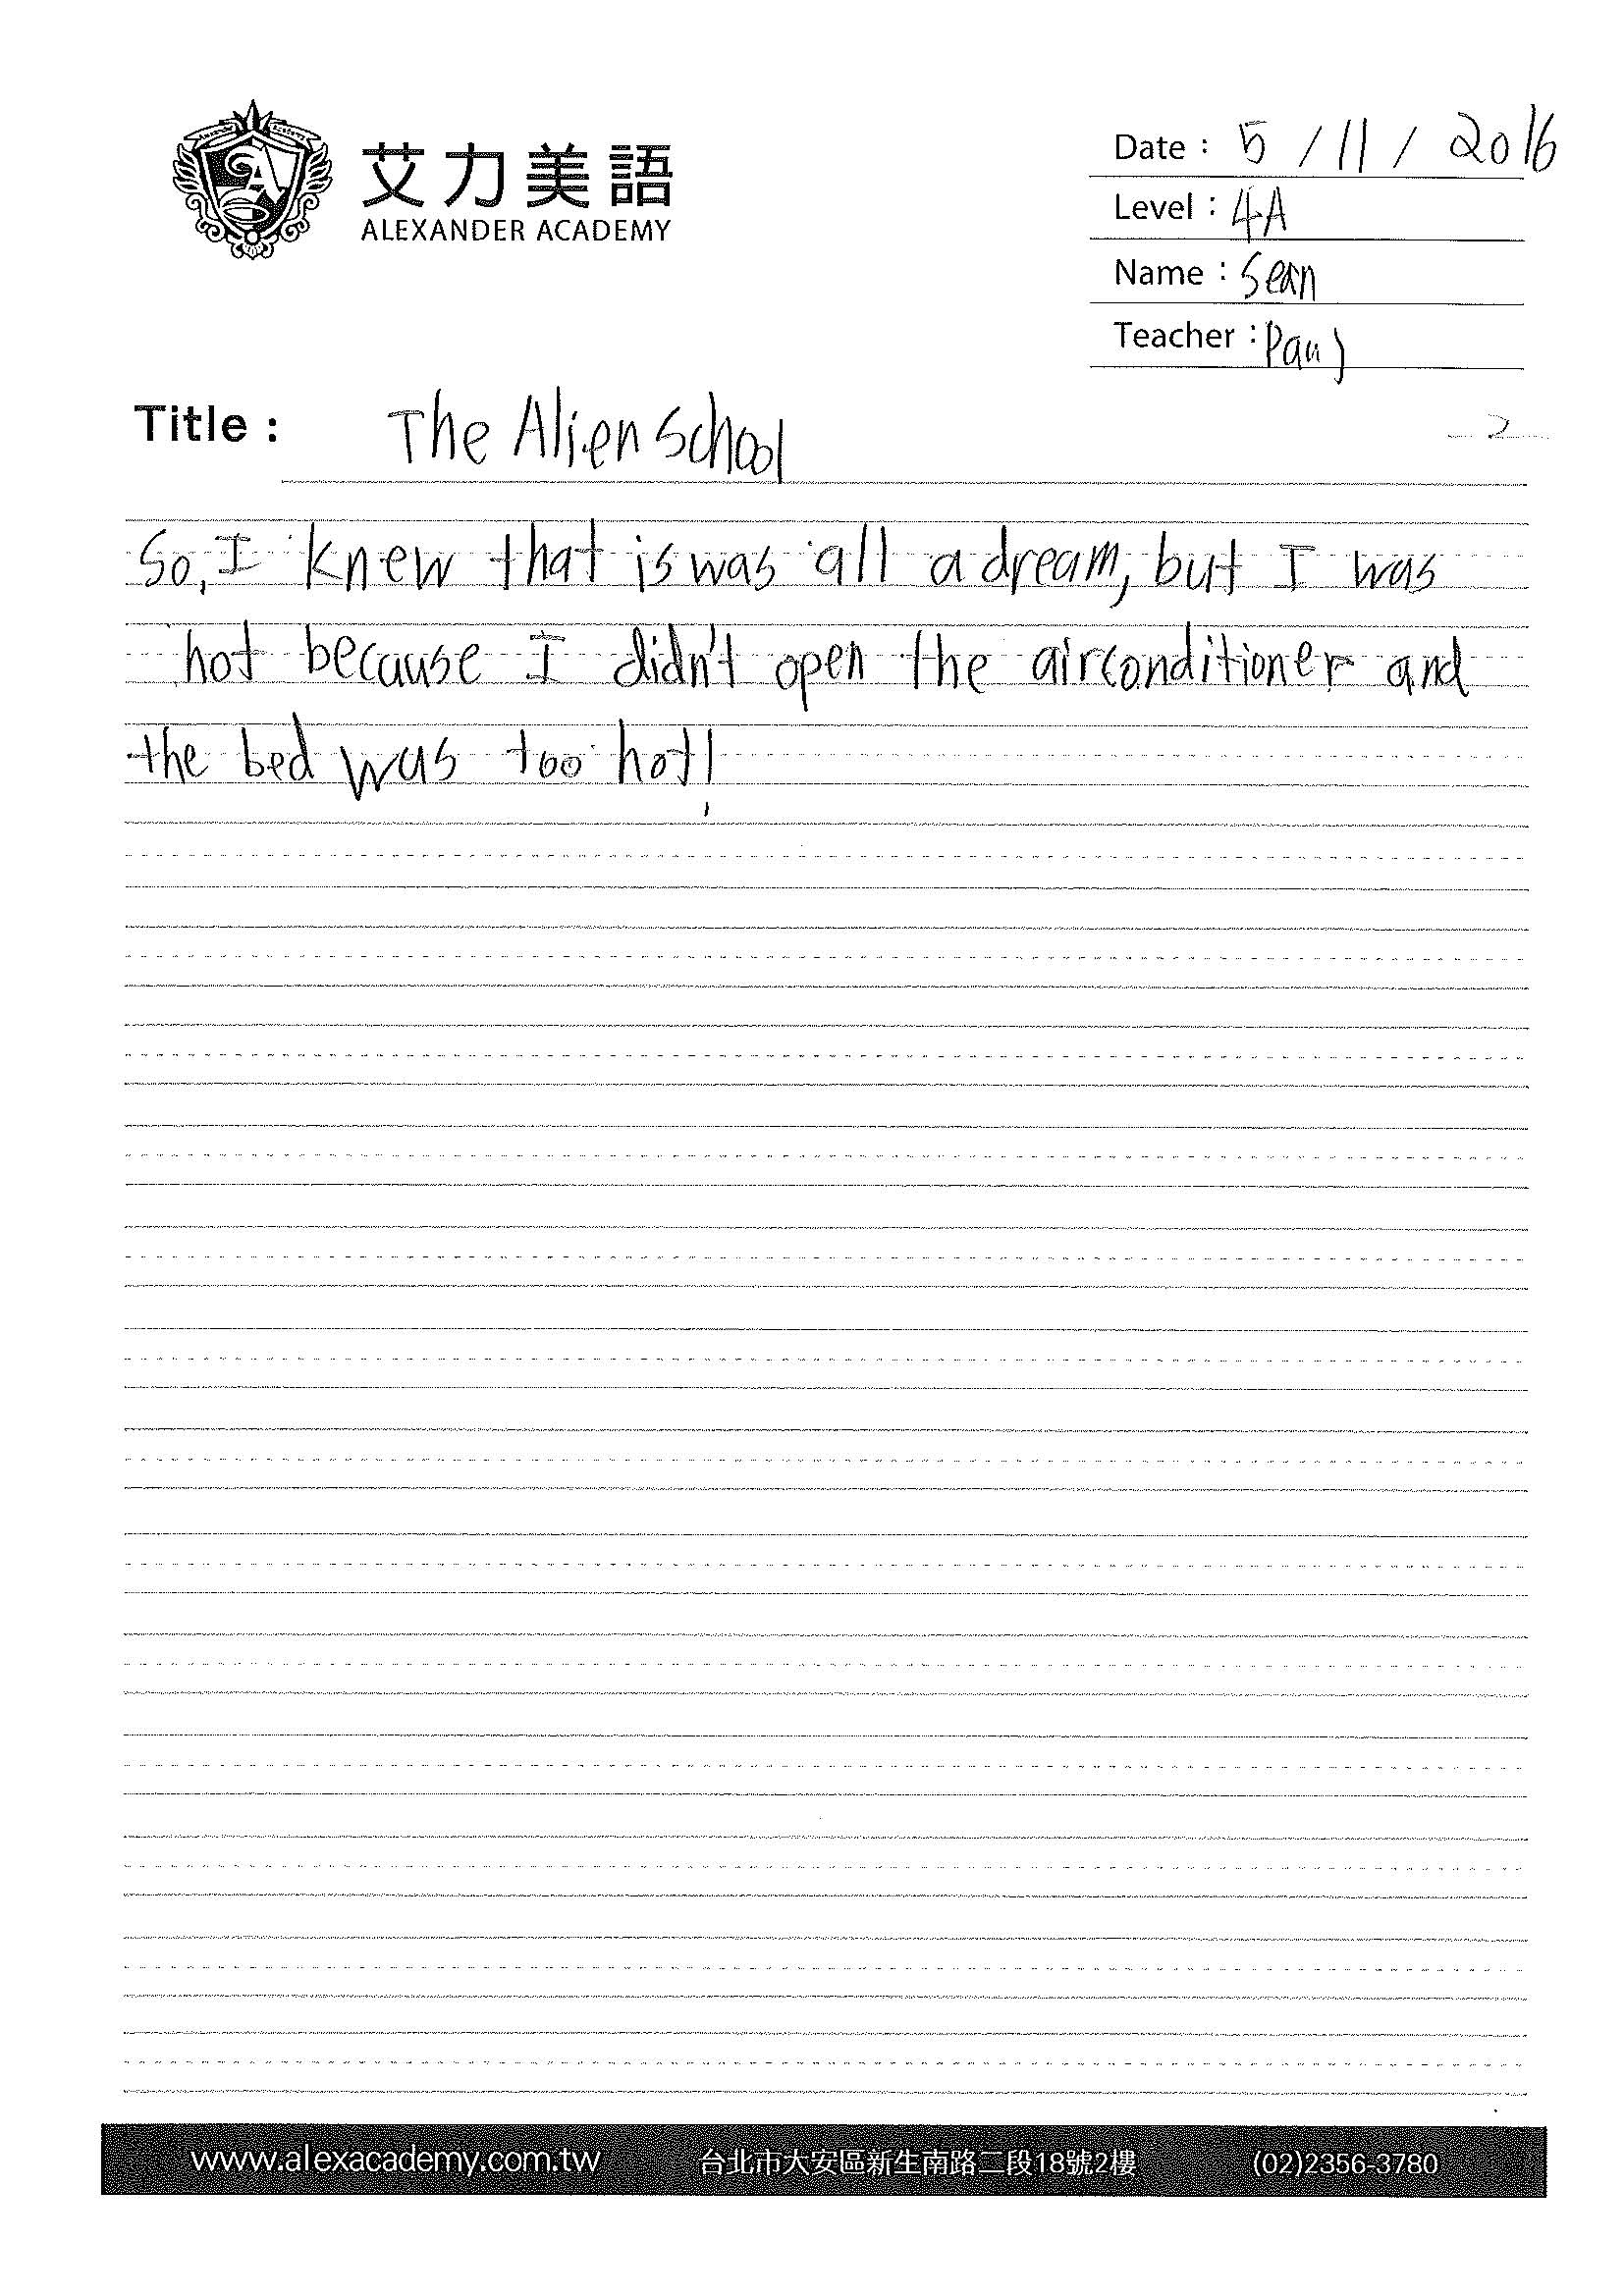 艾力美語
ALEXANDER ACADEMY
Date : 5 / 11 / 2016
Level : 4A
Name : Sean
Teacher : Paul
Title : The Alien School
2
So, I knew that is was all a dream, but I was
hot because I didn't open the airconditioner and
the bed was too hot!
www.alexacademy.com.tw 台北市大安區新生南路二段18號2樓 (02)2356-3780